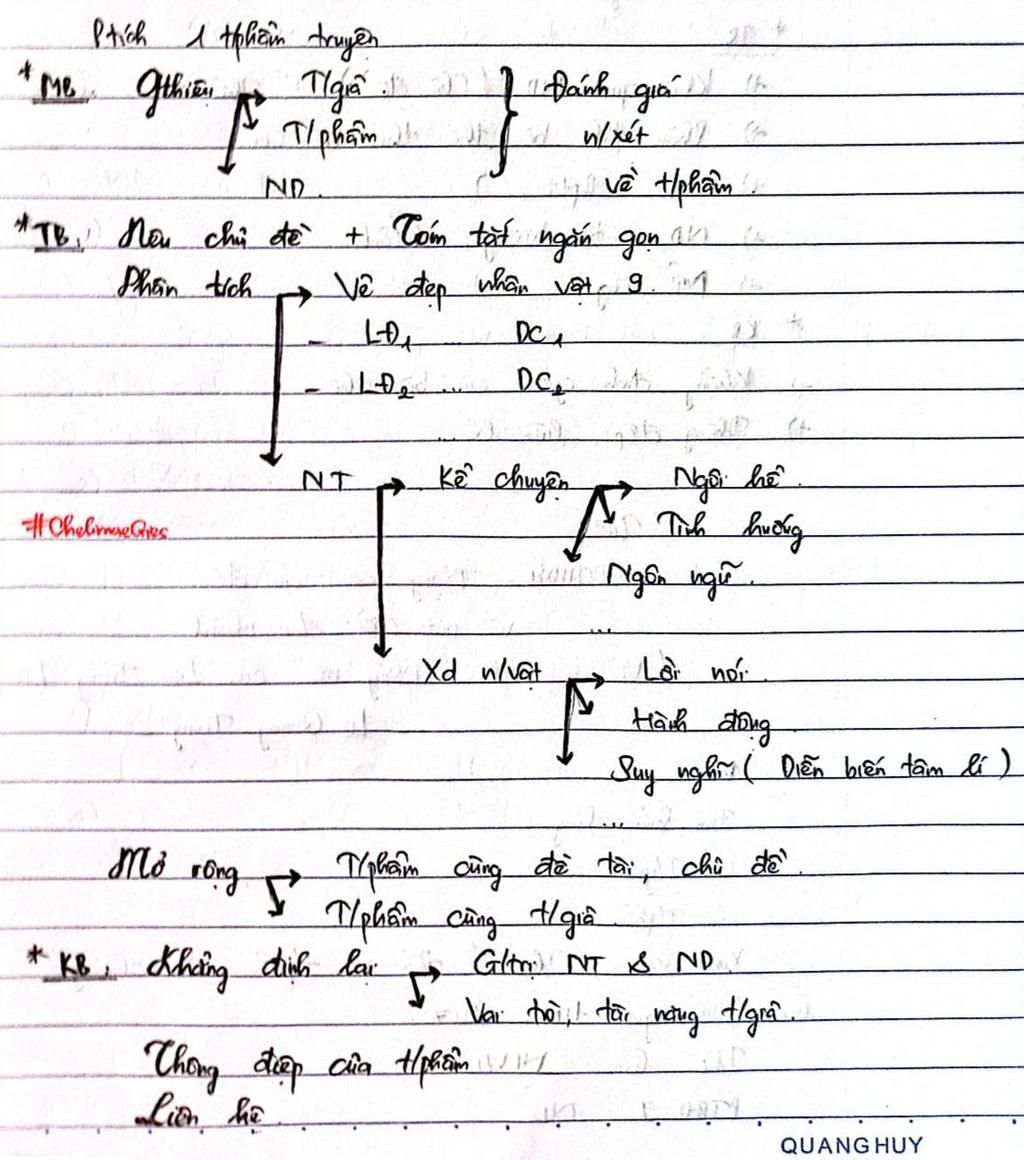 Ptích 1 t/phẩm truyện
* MB. Gthiệu T/giả. Đánh giá
T/phẩm n/xét
ND. về t/phẩm
* TB. Nêu chủ đề + Tóm tắt ngắn gọn
Phân tích Vẻ đẹp nhân vật
- LĐ1 ... DC1
- LĐ2 ... DC2
...
NT Kể chuyện Ngôi kể.
Tình huống
Ngôn ngữ.
...
Xd n/vật Lời nói.
Hành động
Suy nghĩ (Diễn biến tâm lí)
...
Mở rộng T/phẩm cùng đề tài, chủ đề.
T/phẩm cùng t/giả.
* KB. Khẳng định lại G/trị NT & ND.
Vai trò, tài năng t/giả.
Thông điệp của t/phẩm
Liên hệ.
QUANG HUY